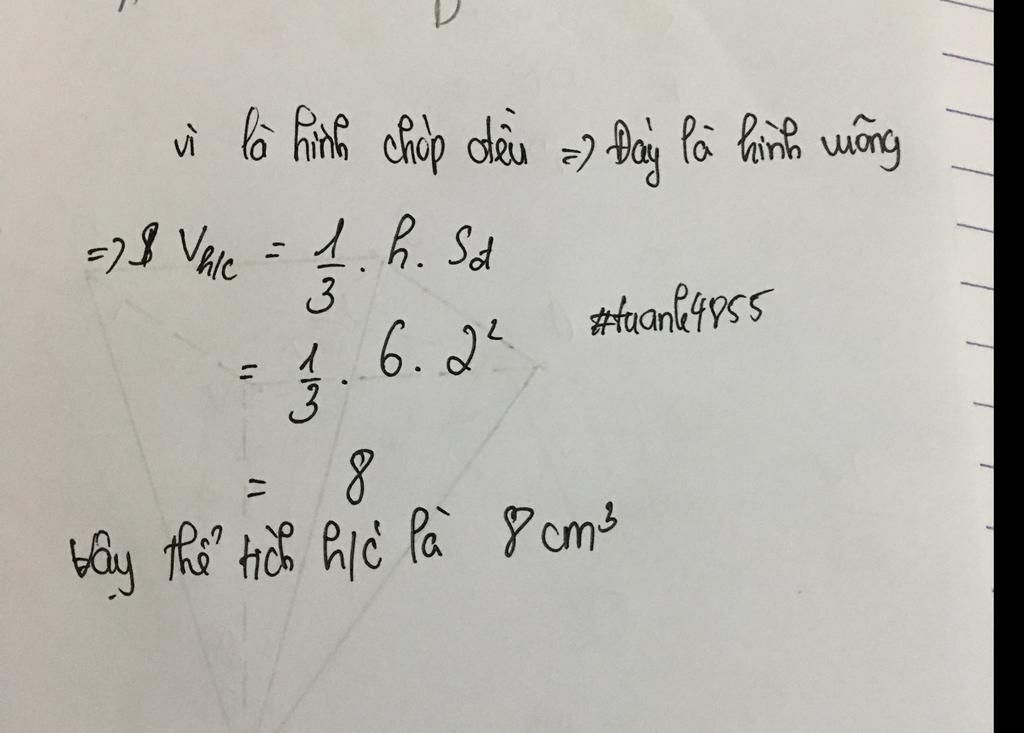 D
vì là hình chóp đều => Đáy là hình vuông
=> V h/c = 1/3 . h. Sđ
#tuanle4855
= 1/3 . 6. 2²
= 8
Vậy thể tích h/c là 8 cm³